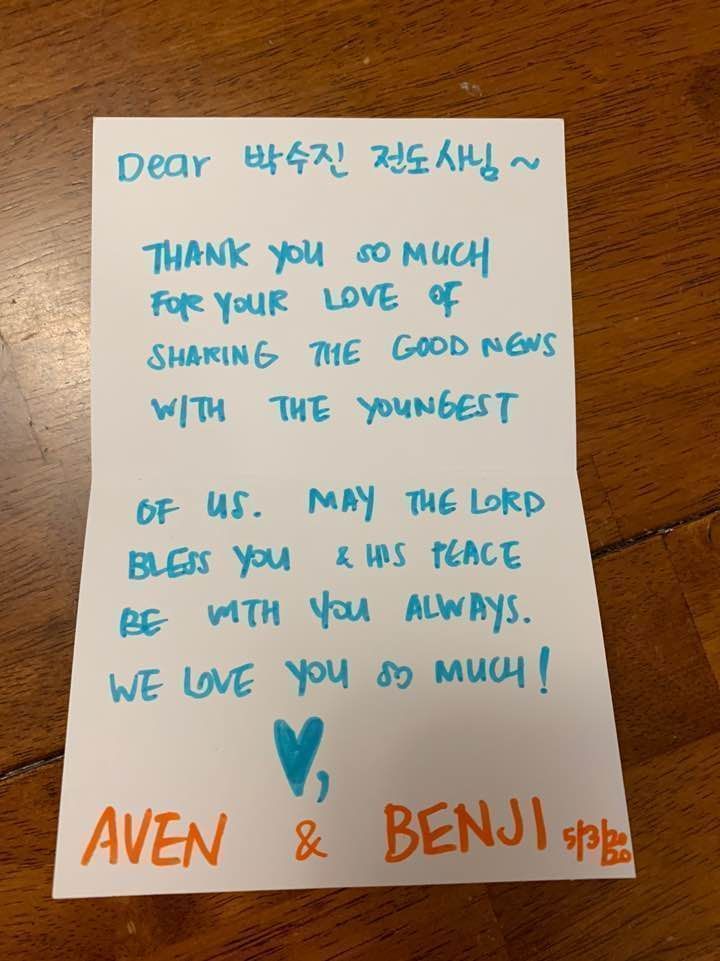 Dear 박수진 전도사님 ~
THANK YOU SO MUCH
FOR YOUR LOVE OF
SHARING THE GOOD NEWS
WITH THE YOUNGEST
OF US. MAY THE LORD
BLESS YOU & HIS PEACE
BE WITH YOU ALWAYS.
WE LOVE YOU SO MUCH!
♥,
AVEN & BENJI 5/3/2020